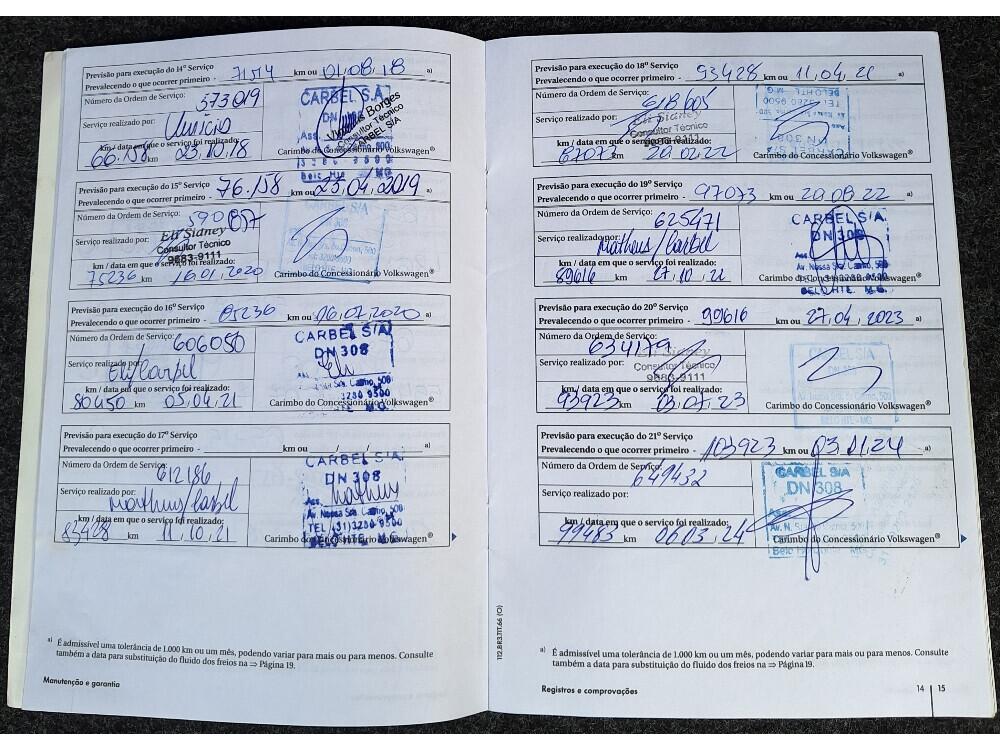 Previsão para execução do 14º Serviço
Prevalecendo o que ocorrer primeiro - 71514 km ou 01,08,18 a)
Número da Ordem de Serviço: 573019
Serviço realizado por: Vinicius
km / data em que o serviço foi realizado:
66.158 km 23.10.18
CARBEL S.A.
DN
Vinicius Borges
Consultor Técnico
CARBEL S/A
Carimbo do Concessionário Volkswagen®
Previsão para execução do 15º Serviço
Prevalecendo o que ocorrer primeiro - 76.158 km ou 23.04.2019 a)
Número da Ordem de Serviço:
Serviço realizado por: Eli Sidney
Consultor Técnico
9883-9111
km / data em que o serviço foi realizado:
75236 km 16.01.2020
Carimbo do Concessionário Volkswagen®
Previsão para execução do 16º Serviço
Prevalecendo o que ocorrer primeiro - 85236 km ou 16.07.2020 a)
Número da Ordem de Serviço: 606050
Serviço realizado por: Eli/Carbel
km / data em que o serviço foi realizado:
80450 km 05.04.21
CARBEL S/A
DN 308
3280 9500
Carimbo do Concessionário Volkswagen®
Previsão para execução do 17º Serviço
Prevalecendo o que ocorrer primeiro - km ou a)
Número da Ordem de Serviço: 612186
Serviço realizado por: Matheus/Carbel
km / data em que o serviço foi realizado:
83428 km 11.10.21
CARBEL S/A.
DN 308
Ass. Matheus
Av. Nossa Sra. Carmo, 500
TEL (31)3280 9500
Carimbo do Concessionário Volkswagen®
a) É admissível uma tolerância de 1.000 km ou um mês, podendo variar para mais ou para menos. Consulte
também a data para substituição do fluido dos freios na ⇒ Página 19.
Manutenção e garantia
Previsão para execução do 18º Serviço
Prevalecendo o que ocorrer primeiro - 93428 km ou 11,04,21 a)
Número da Ordem de Serviço: 618605
Serviço realizado por: Eli Sidney
Consultor Técnico
9883-9111
km / data em que o serviço foi realizado:
87073 km 20.02.22
Carimbo do Concessionário Volkswagen®
Previsão para execução do 19º Serviço
Prevalecendo o que ocorrer primeiro - 97073 km ou 20.08.22 a)
Número da Ordem de Serviço: 625471
Serviço realizado por: Matheus/Carbel
km / data em que o serviço foi realizado:
89616 km 27,10,22
CARBEL S/A.
DN 308
Av. Nossa Sra. Carmo, 500
BELO HTE. M.G.
Carimbo do Concessionário Volkswagen®
Previsão para execução do 20º Serviço
Prevalecendo o que ocorrer primeiro - 99616 km ou 27,04,2023 a)
Número da Ordem de Serviço: 634179
Serviço realizado por: Eli Sidney
Consultor Técnico
9883-9111
km / data em que o serviço foi realizado:
93923 km 03.07.23
CARBEL S/A
BELO HTE-MG
Carimbo do Concessionário Volkswagen®
Previsão para execução do 21º Serviço
Prevalecendo o que ocorrer primeiro - 103923 km ou 03.01.24 a)
Número da Ordem de Serviço: 641432
Serviço realizado por:
km / data em que o serviço foi realizado:
99483 km 06.03.24
CARBEL S/A
DN 308
Carimbo do Concessionário Volkswagen®
a) É admissível uma tolerância de 1.000 km ou um mês, podendo variar para mais ou para menos. Consulte
também a data para substituição do fluido dos freios na ⇒ Página 19.
112.BR3.T1T.66 (O)
Registros e comprovações 14 | 15